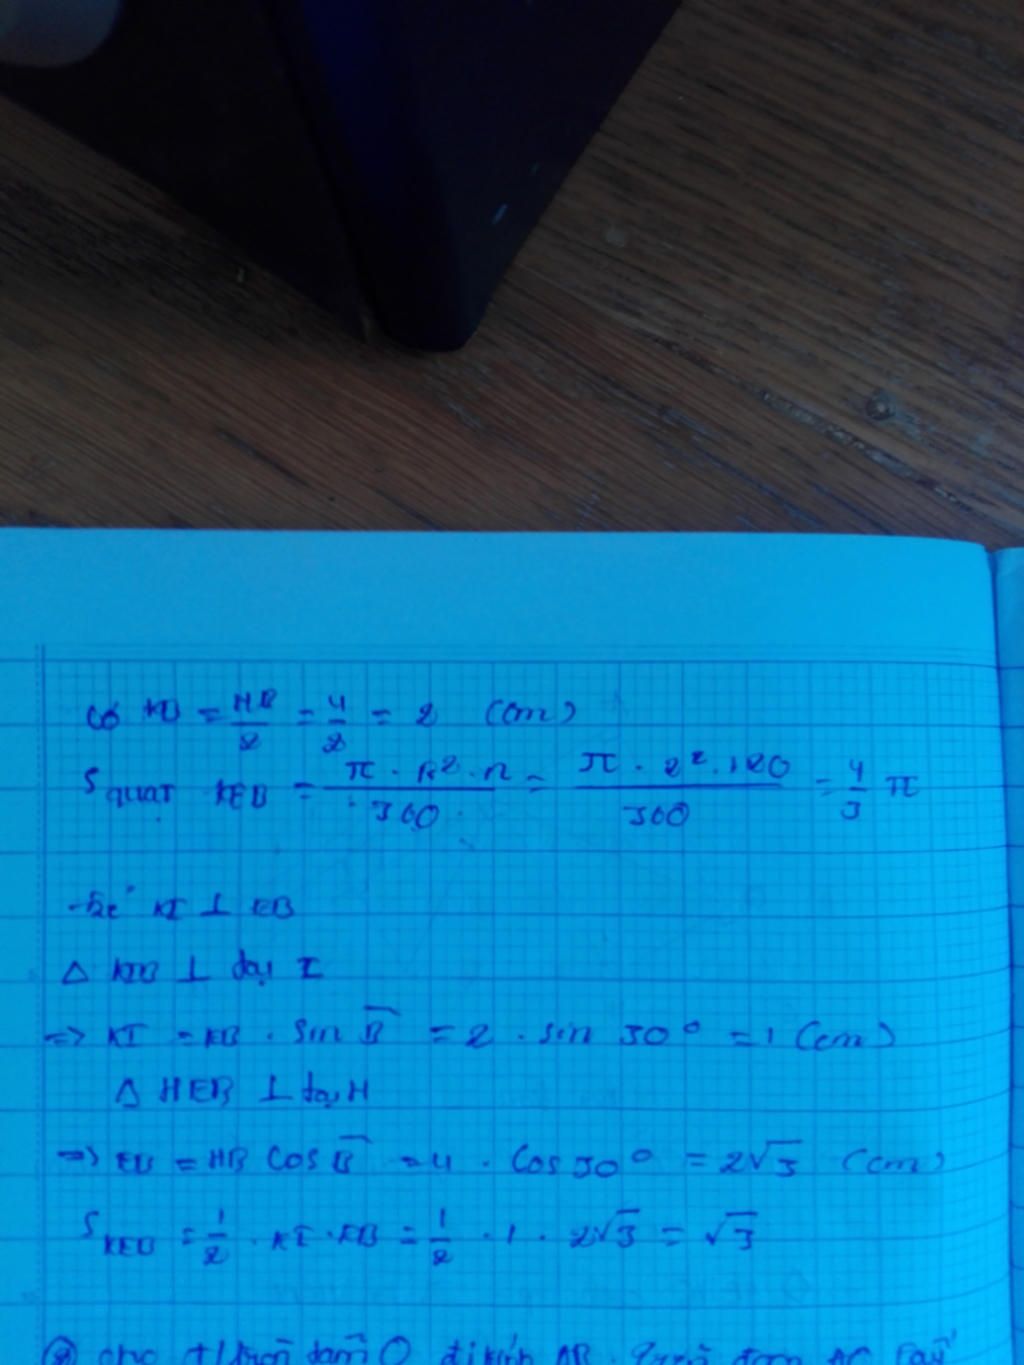 Có KB = HB/2 = 4/2 = 2 (cm)
S quạt KEB = π . R² . n / 360 = π . 2² . 120 / 360 = 4/3 π
Kẻ KI ⊥ EB
Δ KIB ⊥ tại I
=> KI = KB . sin B = 2 . sin 30° = 1 (cm)
Δ HEB ⊥ tại H
=> EB = HB cos B = 4 . cos 30° = 2√3 (cm)
S KEB = 1/2 . KI . EB = 1/2 . 1 . 2√3 = √3
cho tâm O đ.kính AB